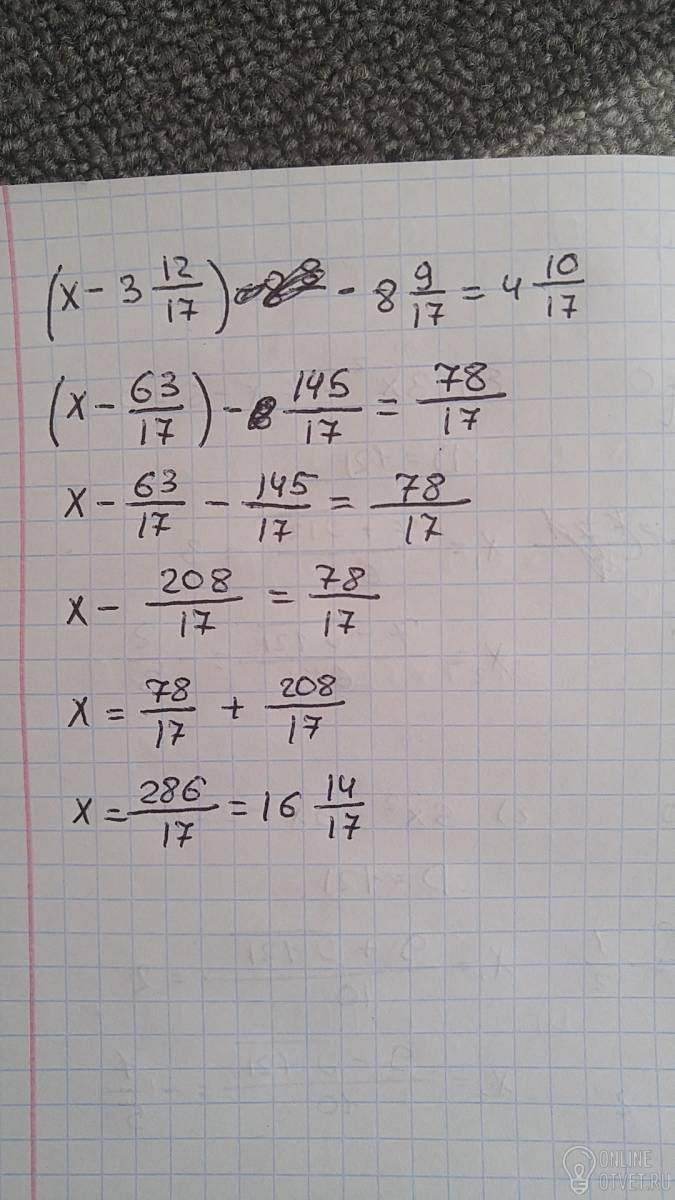 (x - 3 12/17) - 8 9/17 = 4 10/17
(x - 63/17) - 145/17 = 78/17
x - 63/17 - 145/17 = 78/17
x - 208/17 = 78/17
x = 78/17 + 208/17
x = 286/17 = 16 14/17
ONLINE
OTVET.RU